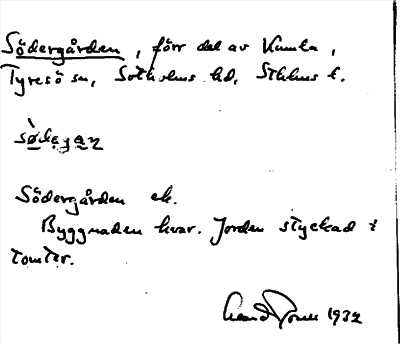 Södergården, förr del av Kumla,
Tyresö sn, Sotholms hd, Sthlms l.
Södergården ek.
Byggnaden kvar. Jorden styckad t
tomter.
1932